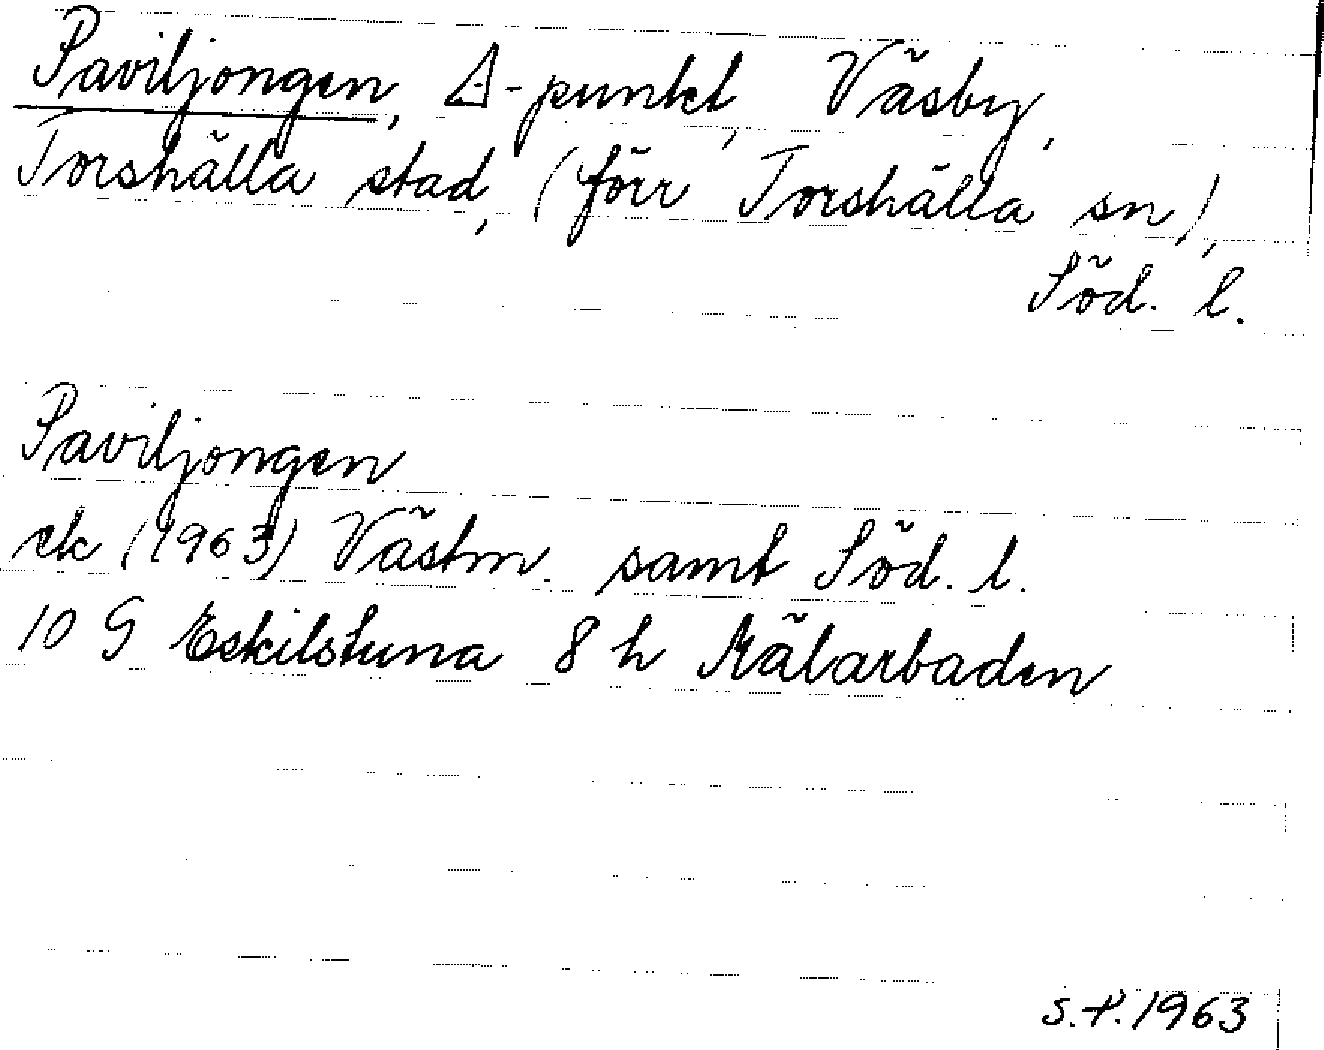 Paviljongen, △-punkt, Väsby,
Torshälla stad, (förr Torshälla sn),
Söd. l.
Paviljongen
ek (1963) Västm. samt Söd. l.
10 G Eskilstuna 8 h Mälarbaden
S.P. 1963